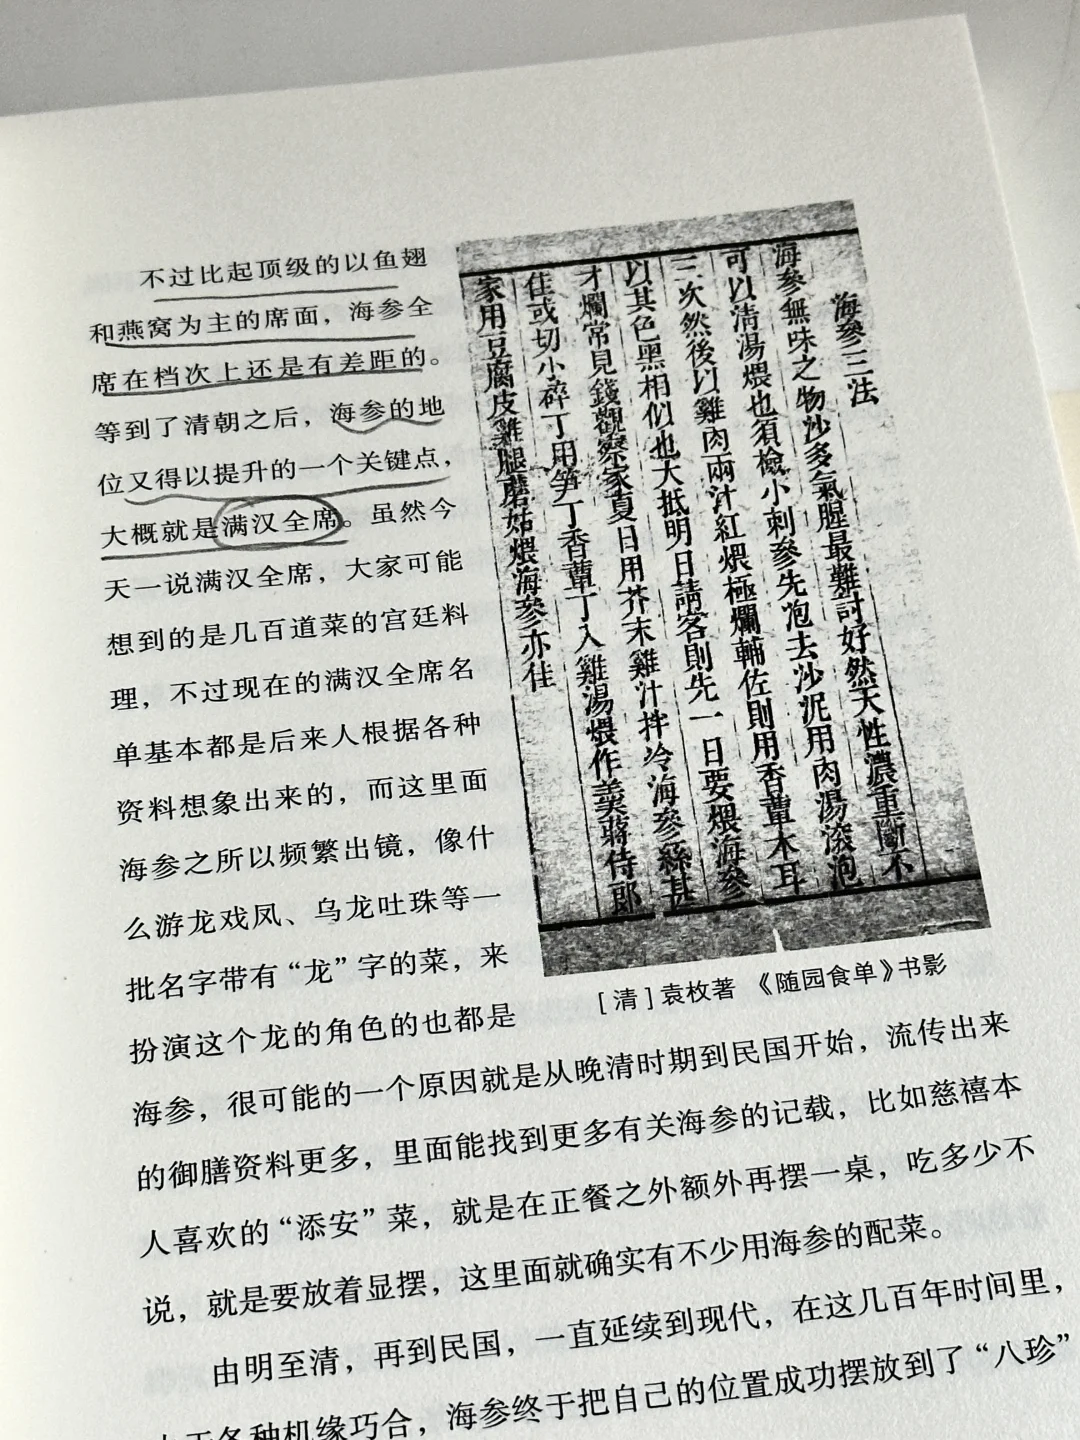 不过比起顶级的以鱼翅
和燕窝为主的席面，海参全
席在档次上还是有差距的。
等到了清朝之后，海参的地
位又得以提升的一个关键点，
大概就是满汉全席。虽然今
天一说满汉全席，大家可能
想到的是几百道菜的宫廷料
理，不过现在的满汉全席名
单基本都是后来人根据各种
资料想象出来的，而这里面
海参之所以频繁出镜，像什
么游龙戏凤、乌龙吐珠等一
批名字带有“龙”字的菜，来
扮演这个龙的角色的也都是
海参，很可能的一个原因就是从晚清时期到民国开始，流传出来
的御膳资料更多，里面能找到更多有关海参的记载，比如慈禧本
人喜欢的“添安”菜，就是在正餐之外额外再摆一桌，吃多少不
说，就是要放着显摆，这里面就确实有不少用海参的配菜。
由明至清，再到民国，一直延续到现代，在这几百年时间里，
各种机缘巧合，海参终于把自己的位置成功摆放到了“八珍”
海參三法
海參無味之物沙多氣腥最難討好然天性濃重斷不
可以清湯煨也須檢小刺參先泡去沙泥用肉湯滾泡
三次然後以雞肉兩汁紅煨極爛輔佐則用香蕈木耳
以其色黑相似也大抵明日請客則先一日要煨海參
才爛常見錢觀察家夏日用芥末雞汁拌冷海參絲甚
佳或切小碎丁用笋丁香蕈丁入雞湯煨作羹蔣侍郎
家用豆腐皮雞腿蘑菇煨海參亦佳
［清］袁枚著 《随园食单》书影